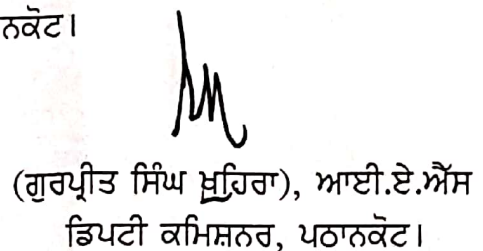 ਨਕੋਟ।
(ਗੁਰਪ੍ਰੀਤ ਸਿੰਘ ਖੁਹਿਰਾ), ਆਈ.ਏ.ਐੱਸ
ਡਿਪਟੀ ਕਮਿਸ਼ਨਰ, ਪਠਾਨਕੋਟ।